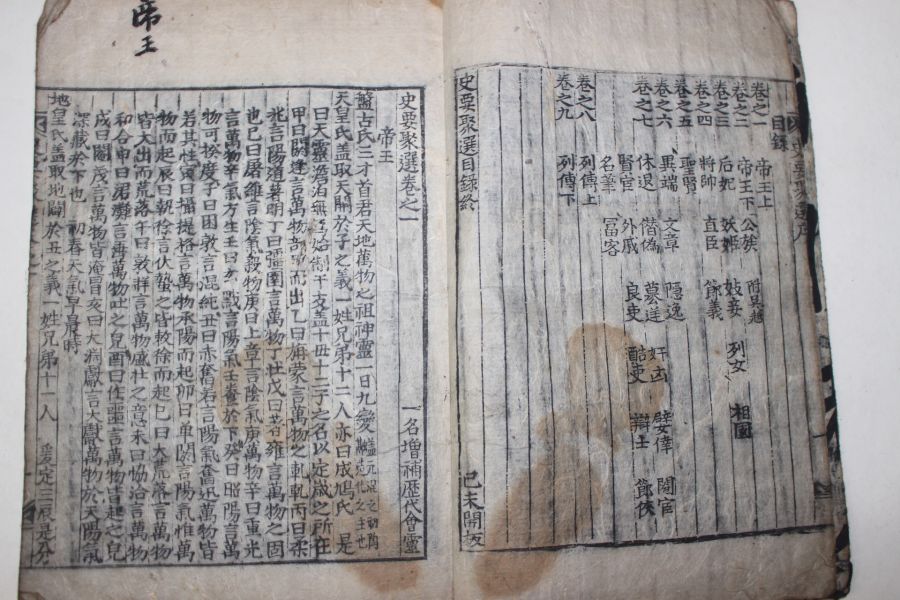 目錄
卷之一 帝王上
卷之二 帝王下 公族 附吳越
卷之三 后妃 妖姬 妓妾 列女
卷之四 將帥 直臣 節義 相國
卷之五 聖賢
卷之六 異端 文章 隱逸 奸凶 嬖倖 閹宦
卷之七 休退 僭偽 酷吏 辯士 節俠
賢宦 外戚 良吏
名筆 富客
卷之八 列傳上
卷之九 列傳下
史要聚選目錄終 己未開板
帝王
史要聚選卷之一 一名增補歷代會靈
帝王
盤古氏三才首君天地萬物之祖神靈一日九變
天皇氏盖取天開於子之義一姓兄弟十二人亦曰成鳩氏是
曰天靈澹泊無爲始制干支盖十毋十二子之名以定歲之所在
甲曰閼逢言萬物部甲而出乙曰旃蒙言萬物之軋軋丙曰柔
兆言陽道著明丁曰彊圉言萬物丁壯戊曰著雍言萬物之固
也己曰屠維言陰氣殺物庚曰上章言陰氣庚萬物辛曰重光
言萬物辛氣方生壬曰玄黓言陽氣壬養於下癸曰昭陽言萬
物可揆度子曰困敦言混純丑曰赤奮若言陽氣奮迅萬物皆
若其性寅曰攝提格言萬物承陽而起卯曰單閼言陽氣惟萬
物而起辰曰執徐言伏蟄之皆敉徐而起巳曰大荒落言萬物
皆大出而荒落午曰敦牂言萬物盛壯之意未曰恊洽言萬物
和合申曰涒灘言萬物吐之皃酉曰作噩言萬物皆起之皃
戌曰閹茂言萬物皆淹冒亥曰大淵獻言大獻萬物於天陽氣
深藏於下也 初春大氣早晨時
地皇氏盖取地闢於丑之義一姓兄弟十一人 爰定三辰是分